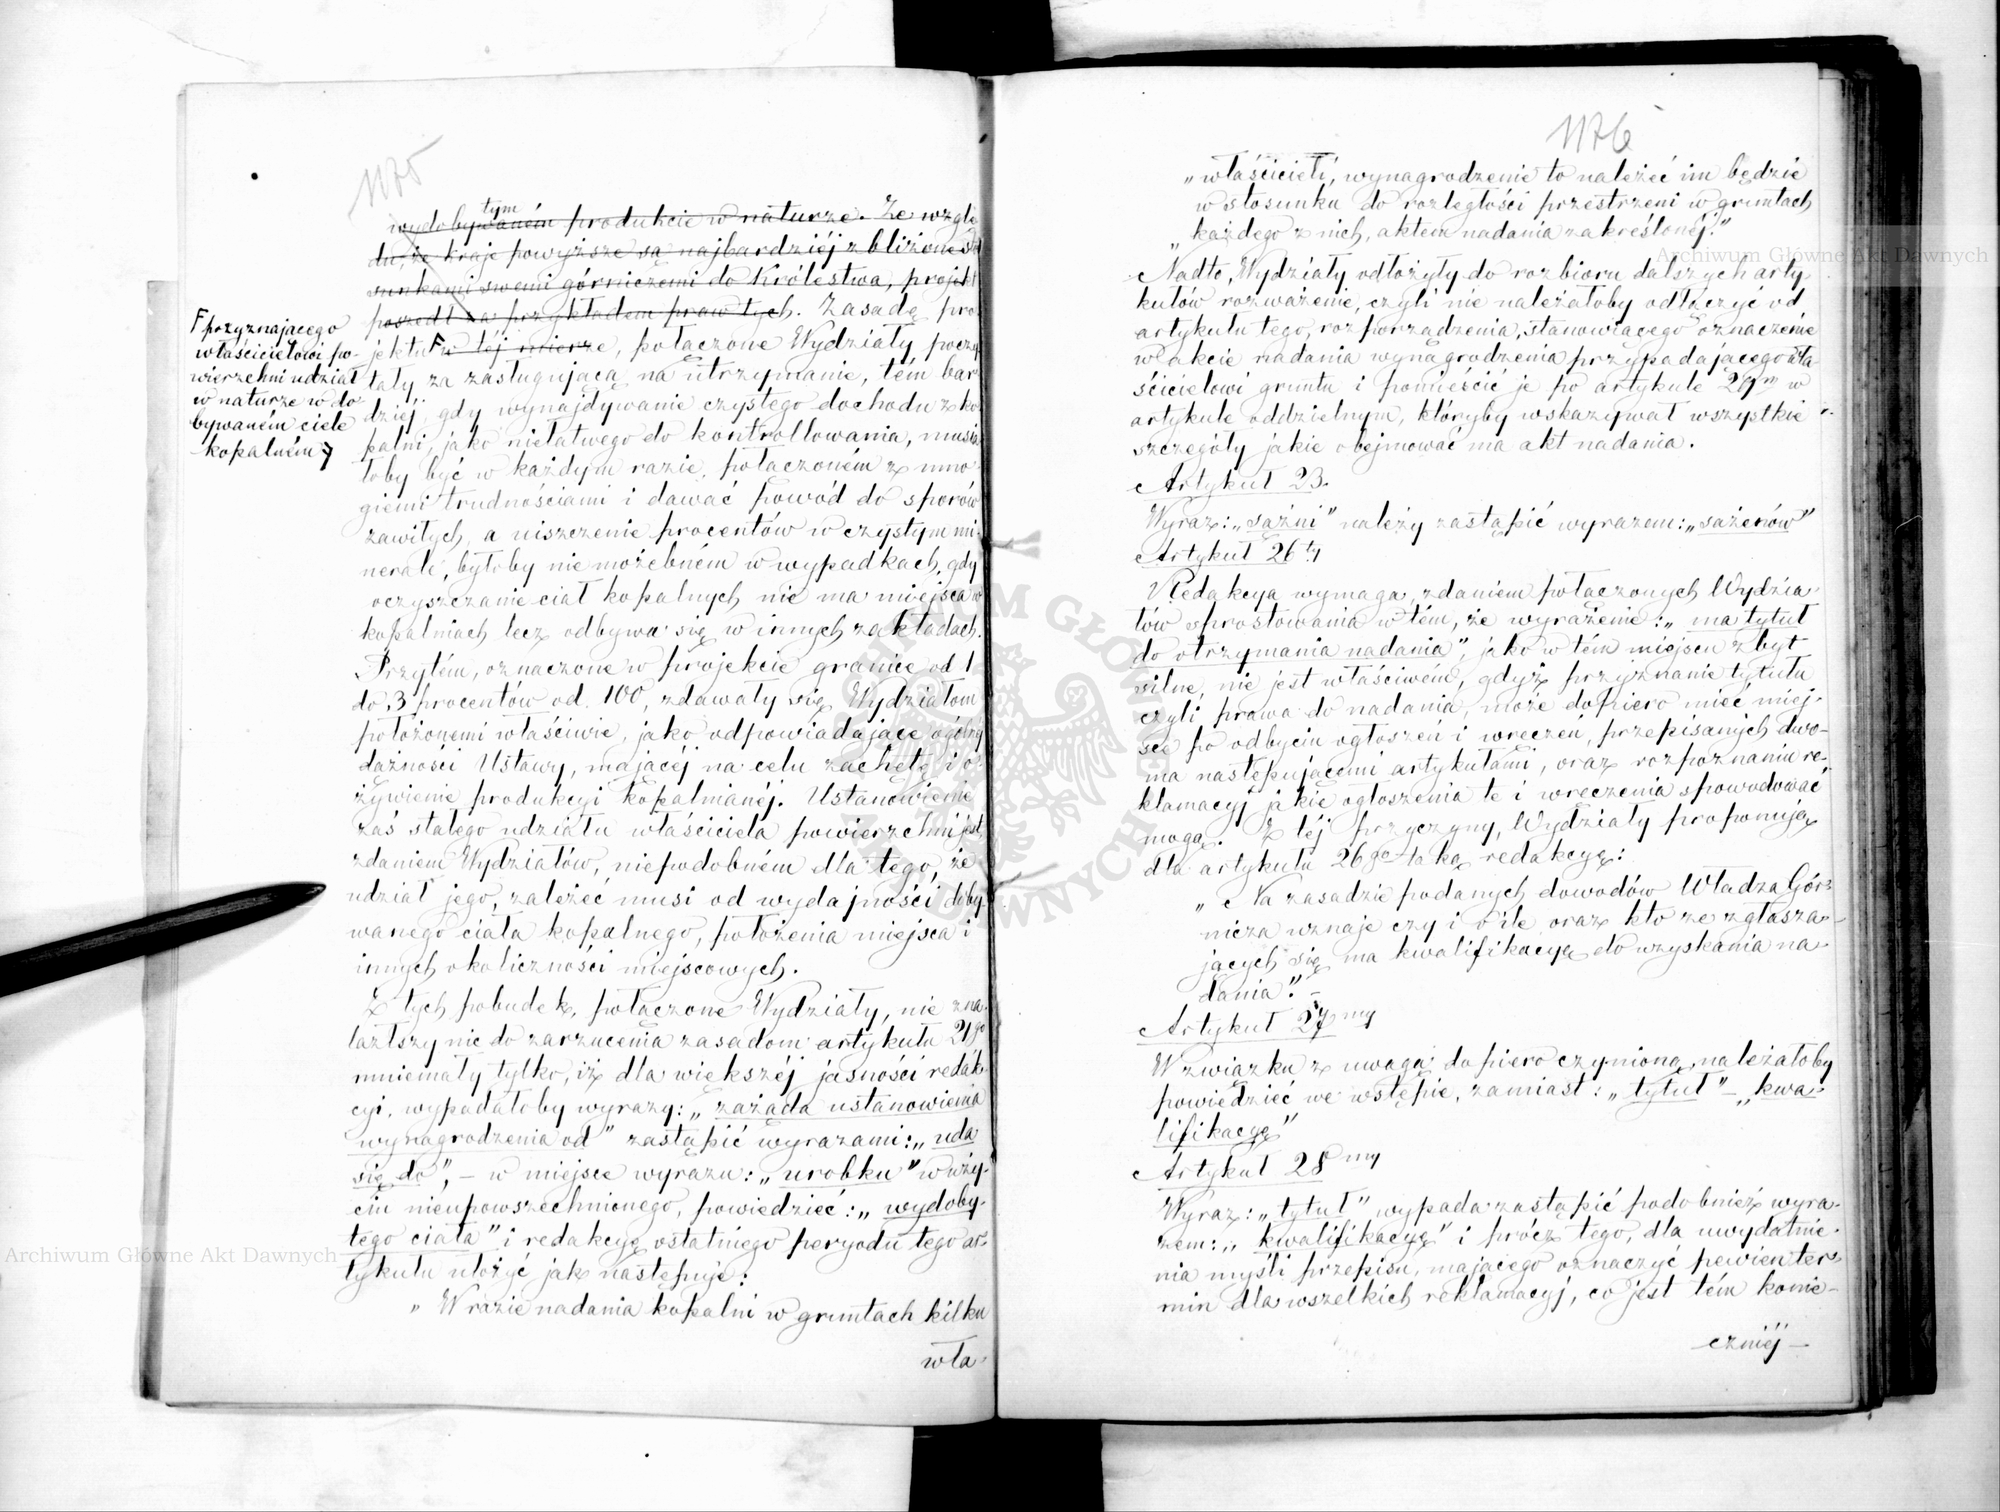 1175
wydobytym produkcie w naturze. Ze wzglę
du, że kraje powyższe są najbardziéj zbliżone sto
sunkami swemi górniczemi do Królestwa, projekt
poszedł za przykładem praw tych. Zasadę pro
jektu F w téj mierze, połączone Wydziały poczy
tały za zasługującą na utrzymanie, tém bar
dziéj, gdy wynajdywanie czystego dochodu z ko
palni, jako niełatwego do kontrollowania, musia
łoby być w każdym razie, połączoném z mno
giemi trudnościami i dawać powód do sporów
zawiłych, a uiszczenie procentów w czystym mi
nerale, byłoby niemożebném w wypadkach, gdy
oczyszczanie ciał kopalnych nie ma miejsca w
kopalniach lecz odbywa się w innych zakładach.
Przytém, oznaczone w projekcie granice od 1
do 3 procentów od 100, zdawały się Wydziałom
położonemi właściwie, jako odpowiadające ogólnéj
dążności Ustawy, mającéj na celu zachętę i o-
żywienie produkcyi kopalnianéj. Ustanowienie
zaś stałego udziału właściciela powierzchni jest,
zdaniem Wydziałów, niepodobném dla tego, że
udział jego, zależéć musi od wydajności doby-
wanego ciała kopalnego, położenia miejsca i
innych okoliczności miejscowych.
Z tych pobudek, połączone Wydziały, nie zna-
lazłszy nic do zarzucenia zasadom artykułu 21go
mniemały tylko, iż dla większéj jasności redak-
cyi, wypadałoby wyrazy: „zażąda ustanowienia
wynagrodzenia od" zastąpić wyrazami: „uda
się do", – w miejsce wyrazu: „urobku" w uży-
ciu nieupowszechnionego, powiedziéć: „wydoby-
tego ciała" i redakcyę ostatniego peryodu tego ar-
tykułu ułożyć jak następuje:
„W razie nadania kopalni w gruntach kilku
wła-
F przyznającego
właścicielowi po-
wierzchni udział
w naturze w do
bywaném ciele
kopalném
1176
„właścicieli, wynagrodzenie to należeć im będzie
w stosunku do rozległości przestrzeni w gruntach
„każdego z nich, aktem nadania zakreślonéj."
Nadto, Wydziały odłożyły do rozbioru dalszych arty
kułów rozważenie, czyli nie należałoby odłączyć od
artykułu tego, rozporządzenia, stanowiącego oznaczenie
w akcie nadania wynagrodzenia przypadającego wła
ścicielowi gruntu i pomieścić je po artykule 29m w
artykule oddzielnym, któryby wskazywał wszystkie
szczegóły jakie obejmować ma akt nadania.
Artykuł 23.
Wyraz: „sążni" należy zastąpić wyrazem: „sażenów"
Artykuł 26ty
Redakcya wymaga, zdaniem połączonych Wydzia-
łów sprostowania w tém, że wyrażenie: „ma tytuł
do otrzymania nadania", jako w tém miejscu zbyt
silne, nie jest właściwém, gdyż przyznanie tytułu
czyli prawa do nadania, może dopiero mieć miej-
sce po odbyciu ogłoszeń i wręczeń, przepisanych dwo-
ma następującemi artykułami, oraz rozpoznaniu re-
klamacyj jakie ogłoszenia te i wręczenia spowodować
mogą. Z téj przyczyny, Wydziały proponują
dla artykułu 26go taką redakcyę:
„Na zasadzie podanych dowodów Władza Gór-
nicza uznaje czy i o ile oraz kto ze zgłasza-
jących się ma kwalifikacyą do uzyskania na-
dania". –
Artykuł 27my
W związku z uwagą dopiero czynioną, należałoby
powiedziéć we wstępie, zamiast: „tytuł" – „kwa-
lifikacyę"
Artykuł 28my
Wyraz: „tytuł" wypada zastąpić podobnież wyra-
zem: „kwalifikacyę" i prócz tego, dla uwydatnie-
nia myśli przepisu, mającego oznaczyć pewien ter-
min dla wszelkich reklamacyj, co jest tém konie-
czniéj –
Archiwum Główne Akt Dawnych
Archiwum Główne Akt Dawnych
ARCHIWUM GŁÓWNE AKT DAWNYCH